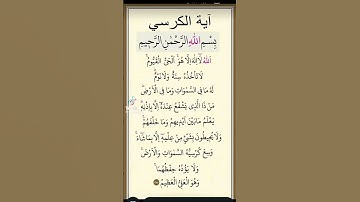 آية الكرسي
بِسْمِ اللهِ الرَّحْمٰنِ الرَّحِيْمِ
اَللهُ لَآ اِلٰهَ اِلَّا هُوَ ۚ اَلْحَيُّ الْقَيُّوْمُ ۚ
لَا تَأْخُذُهٗ سِنَةٌ وَّلَا نَوْمٌ ۗ
لَهٗ مَا فِى السَّمٰوٰتِ وَمَا فِى الْاَرْضِ ۗ
مَنْ ذَا الَّذِيْ يَشْفَعُ عِنْدَهٗٓ اِلَّا بِاِذْنِهٖ ۗ
يَعْلَمُ مَا بَيْنَ اَيْدِيْهِمْ وَمَا خَلْفَهُمْ ۚ
وَلَا يُحِيْطُوْنَ بِشَيْءٍ مِّنْ عِلْمِهٖٓ اِلَّا بِمَا شَآءَ ۚ
وَسِعَ كُرْسِيُّهُ السَّمٰوٰتِ وَالْاَرْضَ ۚ
وَلَا يَـُٔوْدُهٗ حِفْظُهُمَا ۚ
وَهُوَ الْعَلِيُّ الْعَظِيْمُ